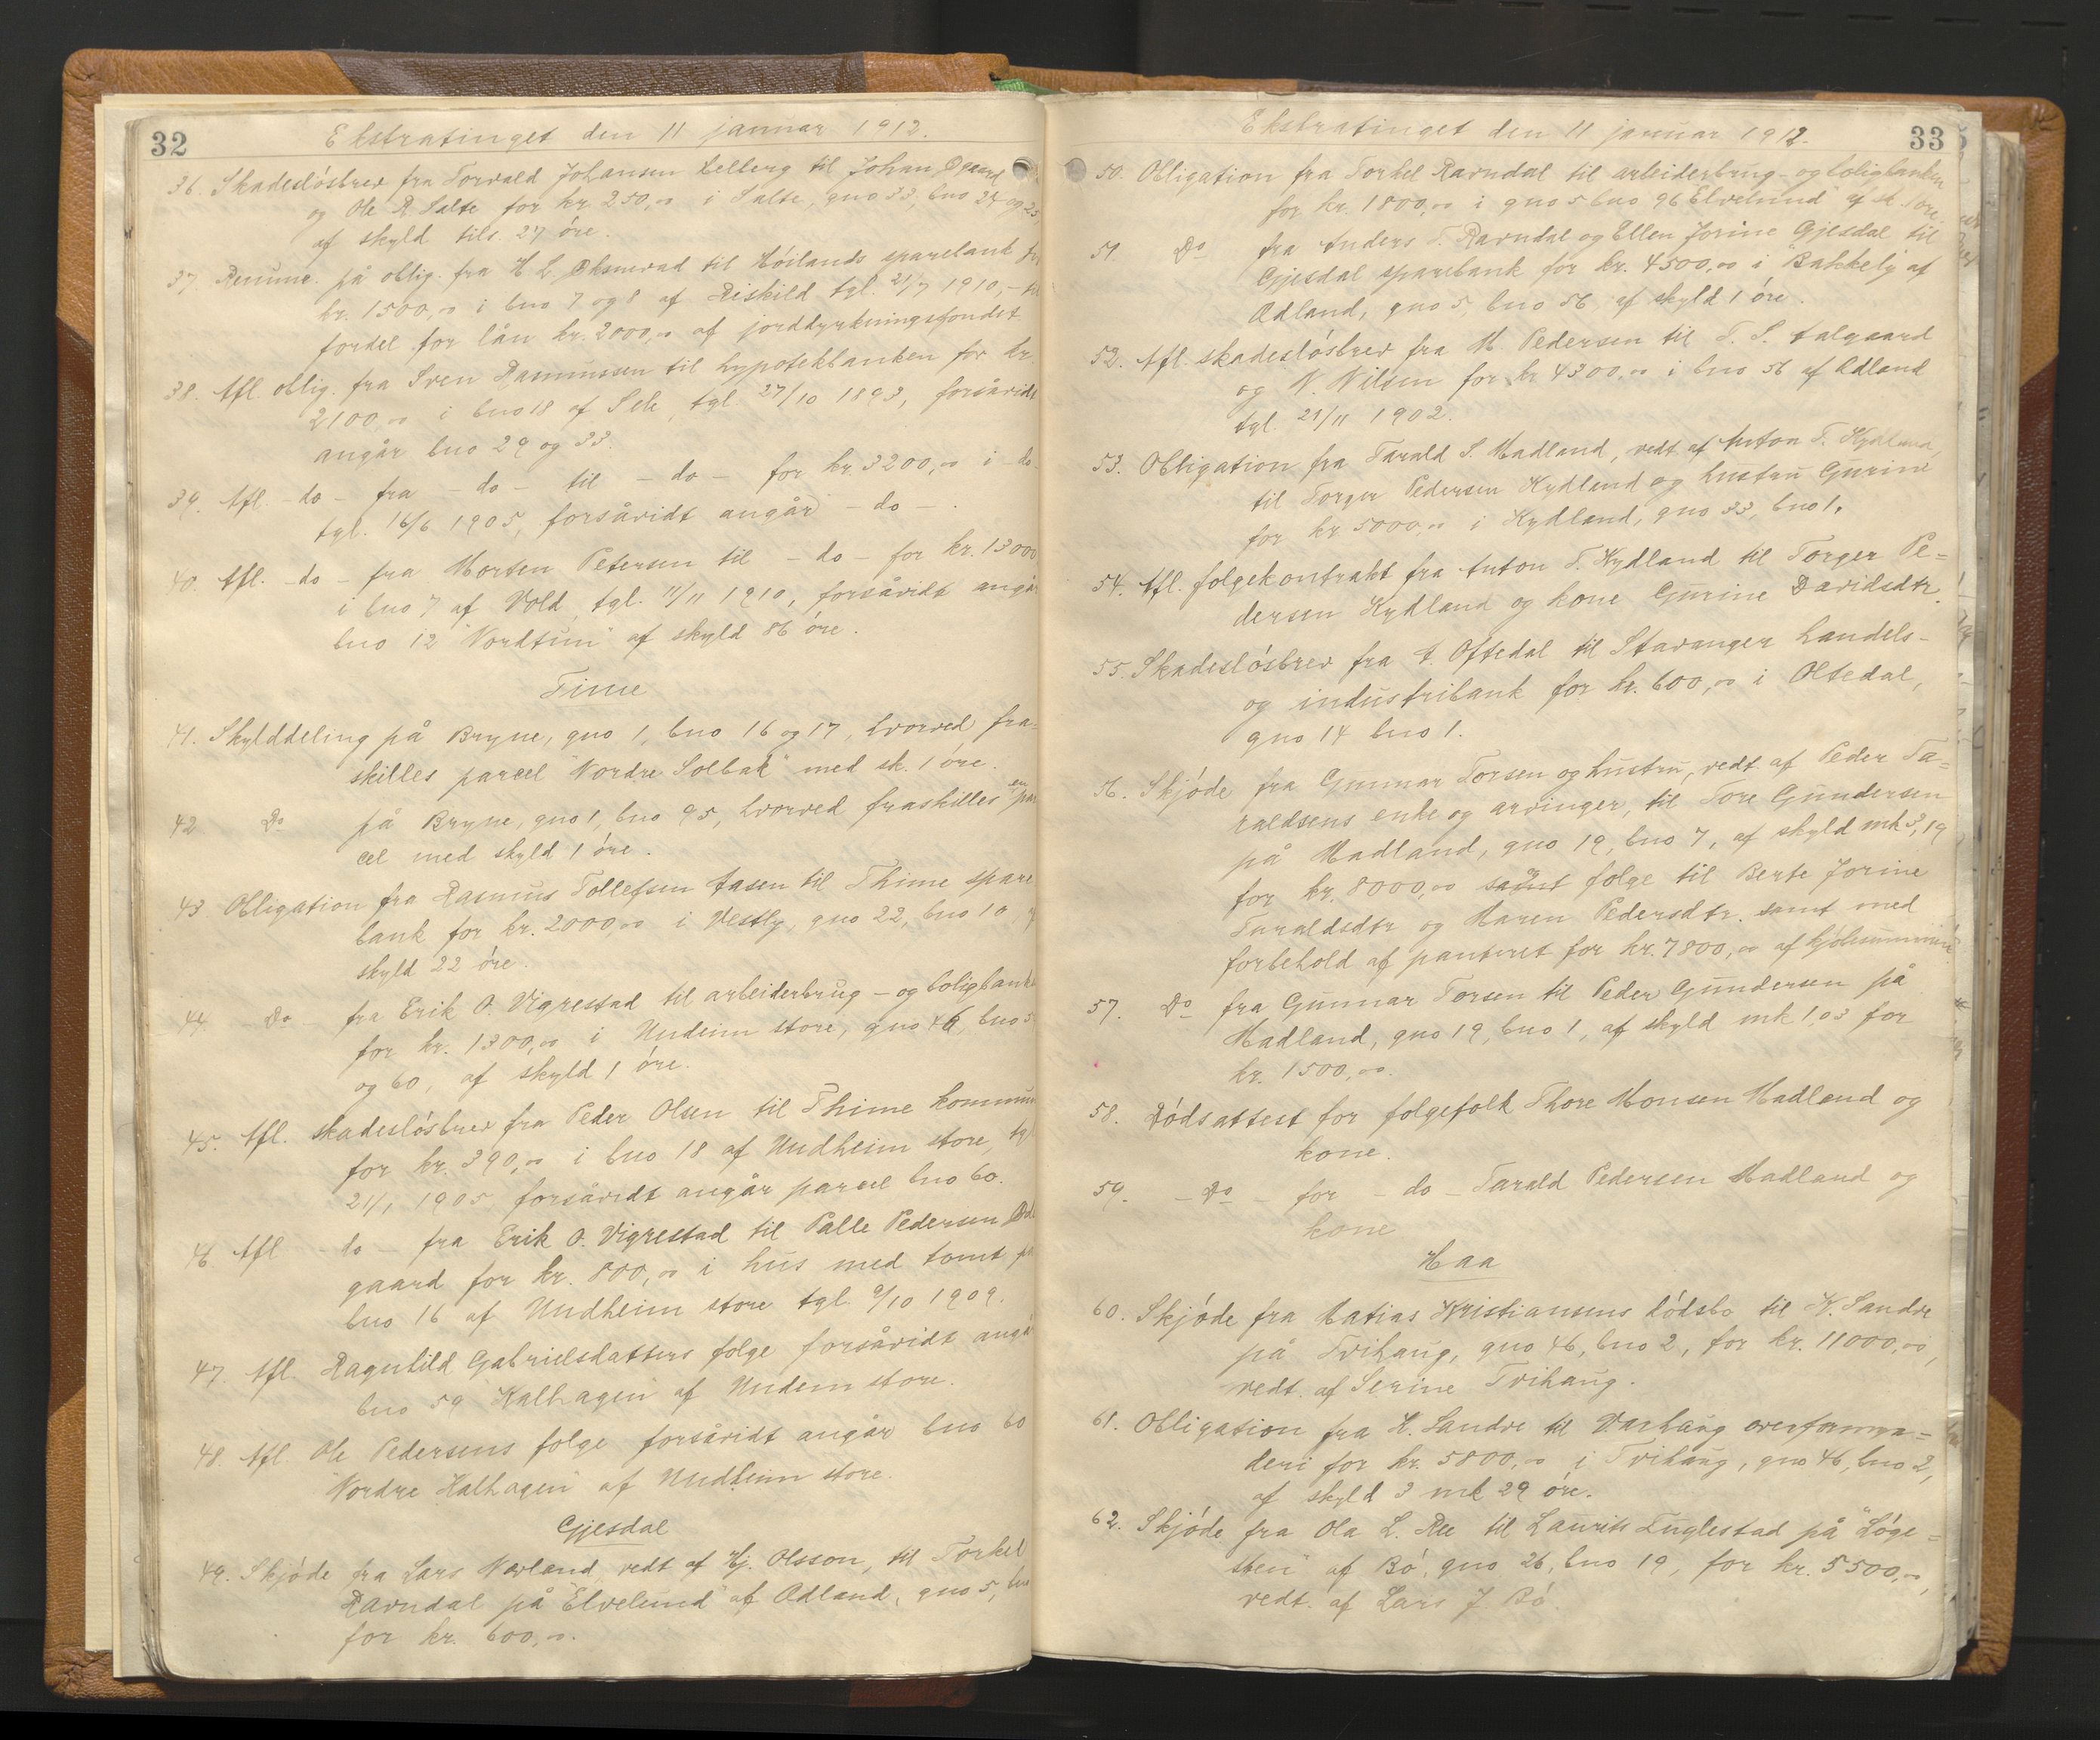 32
Ekstratinget den 11 januar 1912.
36. Skadesløsbrev fra Torvald Johansen Lelberg til Johan Ogaard
og Ole R Salte for kr. 250,00 i Salte, gno 33, bno 24 og 25
af skyld tils. 27 øre.
37. Renunc. på oblig. fra H L Oksnevad til Høilands sparebank for
kr. 1500,00 i bno 7 og 8 af Reiskild tgl. 21/7 1910, - til
fordel for lån kr. 2000,00 af jorddyrkningsfondet
38. Afl. oblig. fra Sven Rasmussen til hypotekbanken for kr.
2100,00 i bno 18 af Sele, tgl. 27/10 1893, forsåvidt
angår bno 29 og 33.
39. Afl. - do - fra - do - til - do - for kr. 3200,00 i - do -
tgl. 16/6 1905, forsåvidt angår - do - .
40. Afl. - do - fra Morten Petersen til - do - for kr. 13000
i bno 7 af Vold, tgl. 11/11 1910, forsåvidt angår
bno 12 "Nordtun" af skyld 86 øre.
Time
41. Skylddeling på Bryne, gno 1, bno 16 og 17, hvorved fra-
skilles parcel "Nordre Solbak" med sk. 1 øre.
42 Do på Bryne, gno 1, bno 95, hvorved fraskilles en par
cel med skyld 1 øre.
43 Obligation fra Rasmus Tollefsen Aasen til Thime spare
bank for kr. 2000,00 i Vestly, gno 22, bno 10, af
skyld 22 øre.
44 Do fra Erik O. Vigrestad til arbeiderbrug - og boligbanken
for kr. 1300,00 i Undeim store, gno 46, bno 5
og 60, af skyld 1 øre.
45. Afl. skadesløsbrev fra Peder Olsen til Thime kommun
for kr. 390,00 i bno 18 af Undheim store, tgl
21/1 1905 forsåvidt angår parcel bno 60.
46 Afl - do - fra Erik O. Vigrestad til Palle Pedersen
gaard for kr. 800,00 i hus med tomt på
bno 16 af Undheim store tgl. 9/10 1909.
47. Afl. Ragnhild Gabrielsdatters følge forsåvidt angår
bno 59 "Kalhagen" af Undem store.
48. Afl. Ole Pedersens følge forsåvidt angår bno 60
"Nordre Kalhagen" af Undheim store.
Gjesdal
49. Skjøde fra Lars Norland, vedt. af Hj. Olsson, til Torkel
Ravndal på "Elvelund" af Ødland, gno 5, bno
for kr. 600,00.
33
Ekstratinget den 11 januar 1912.
50. Obligation fra Torkel Ravndal til arbeiderbrug- og boligbanken
for kr. 1800,00 i gno 5 bno 96 "Elvelund" af sk. 1 øre.
51. Do fra Anders T. Ravndal og Ellen Jorine Gjesdal til
Gjesdal sparebank for kr. 4500,00 i "Bakkely" af
Ødland, gno 5, bno 56 af skyld 1 øre.
52. Afl. skadesløsbrev fra M. Pedersen til T. S. Aalgaard
og N. Nilsen for kr 4300,00 i bno 56 af Ødland
tgl. 21/11 1902.
53. Obligation fra Tarald S. Madland, vedt. af Anton T. Hydland,
til Torger Pedersen Kydland og hustru Gurine
for kr 5000,00 i Kydland, gno 33, bno 1.
54. Afl. følgekontrakt fra Anton T. Kydland til Torger Pe=
dersen Kydland og kone Gurine Davidsdtr.
55. Skadesløsbrev fra A. Oftedal til Stavanger handels-
og industribank for kr. 600,00 i Oltedal,
gno 14 bno 1.
56. Skjøde fra Gunnar Torsen og hustru, vedt. af Peder Ta=
raldsens enke og arvinger, til Tore Gundersen
på Madland, gno 19, bno 7, af skyld mk 3,19
for kr. 8000,00 samt og følge til Berte Jorine
Taraldsdtr og Maren Pedersdtr. samt med
forbehold af panteret for kr. 7800,00 af kjøbesummen
57. Do fra Gunnar Torsen til Peder Gundersen på
Madland, gno 19, bno 1, af skyld mk 1,03 for
kr. 1500,00.
58. Dødsattest for følgefolk Thore Monsen Madland og
kone.
59. - Do - for - do - Tarald Pedersen Madland og
kone
Haa
60. Skjøde fra Matias Kristiansens dødsbo til K. Sandve
på Tvihaug, gno 46, bno 2, for kr. 11000,00,
vedt. af Serine Tvihaug.
61. Obligation fra K. Sandve til Varhaug overformyn=
deri for kr. 5800,00 i Tvihaug, gno 46, bno 2,
af skyld 3 mk 29 øre.
62. Skjøde fra Ola L. Ree til Laurits Fuglestad på "Løge=
sten" af Bø, gno 26, bno 19, for kr. 5500,00,
vedt. af Lars J. Bø.